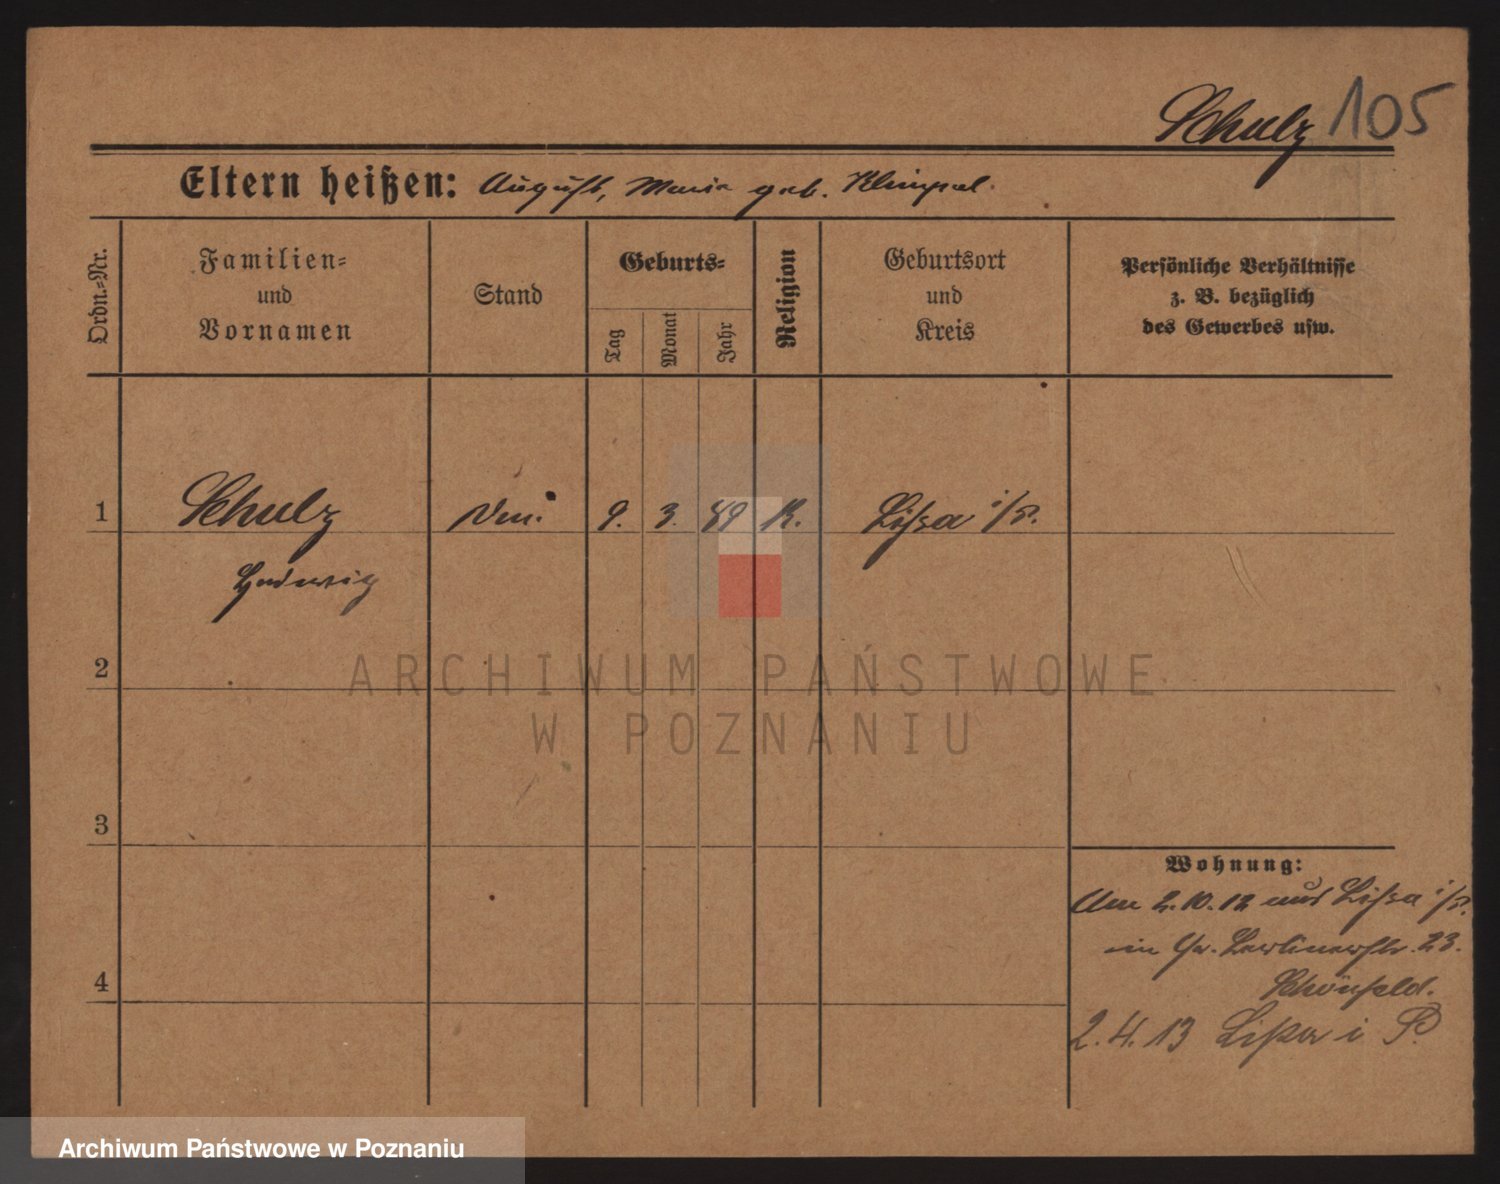 Schulz 105
Eltern heißen: August, Maria geb. Klimpel.
Ordn.-Nr.
Familien-
und
Vornamen
Stand
Geburts-
Tag
Monat
Jahr
Religion
Geburtsort
und
Kreis
Persönliche Verhältnisse
z. B. bezüglich
des Gewerbes usw.
1 Schulz 9. 3. 89 K. Lissa i/P.
2
3
4
Wohnung:
Am 2.10.12 aus Lissa i/P.
in Gr. Berlinerstr. 23.
Schönfeld.
2.4.13 Lissa i P.
ARCHIWUM PAŃSTWOWE
W POZNANIU
Archiwum Państwowe w Poznaniu